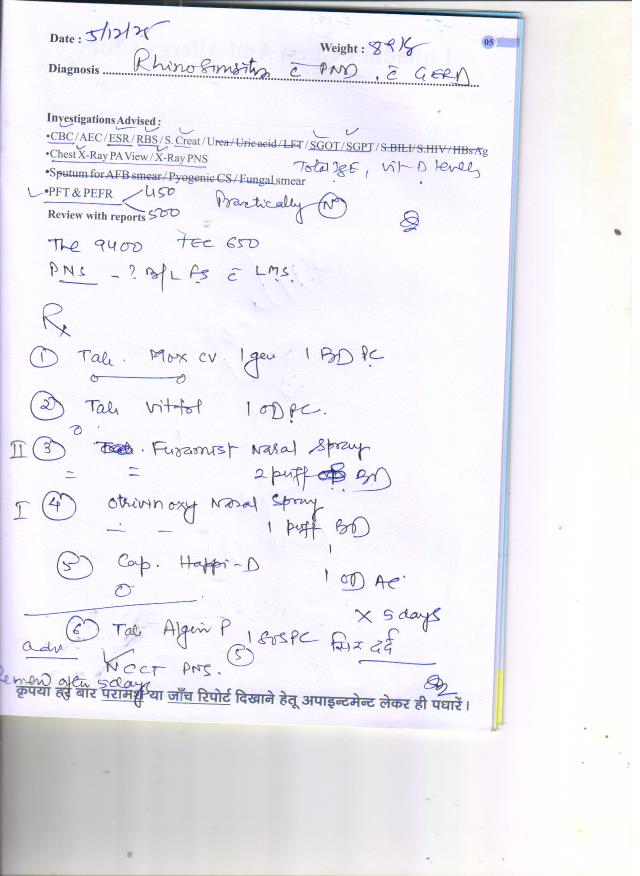 Date : 5/12/25
05
Weight : 89 kg
Diagnosis Rhinosinusitis c̄ PND, c̄ GERD
Investigations Advised :
•CBC/AEC/ESR/RBS/S. Creat/Urea/Uric acid/LFT/SGOT/SGPT/S.BILI/S.HIV/HBsAg
•Chest X-Ray PA View/X-Ray PNS
Total IgE, Vit D levels
•Sputum for AFB smear/Pyogenic CS/Fungal smear
•PFT & PEFR 450
Practically (N)
Review with reports 500
The 9400 TEC 650
PNS - ? B/L FS c̄ LMS.
Rx
① Tab. Mox CV 1gm 1 BD PC
② Tab 1 OD PC.
II ③ Furamist Nasal Spray
2 puff BD
I ④ Otrivin oxy Nasal Spray
1 puff BD
⑤ Cap. Happi-D
1 OD AC
X 5 days
⑥ Tab Algin P 1 SOS PC सिर दर्द
⑤
adv
NCCT PNS.
Review after 5 days
कृपया हर बार परामर्श या जाँच रिपोर्ट दिखाने हेतू अपाइन्टमेन्ट लेकर ही पधारें।